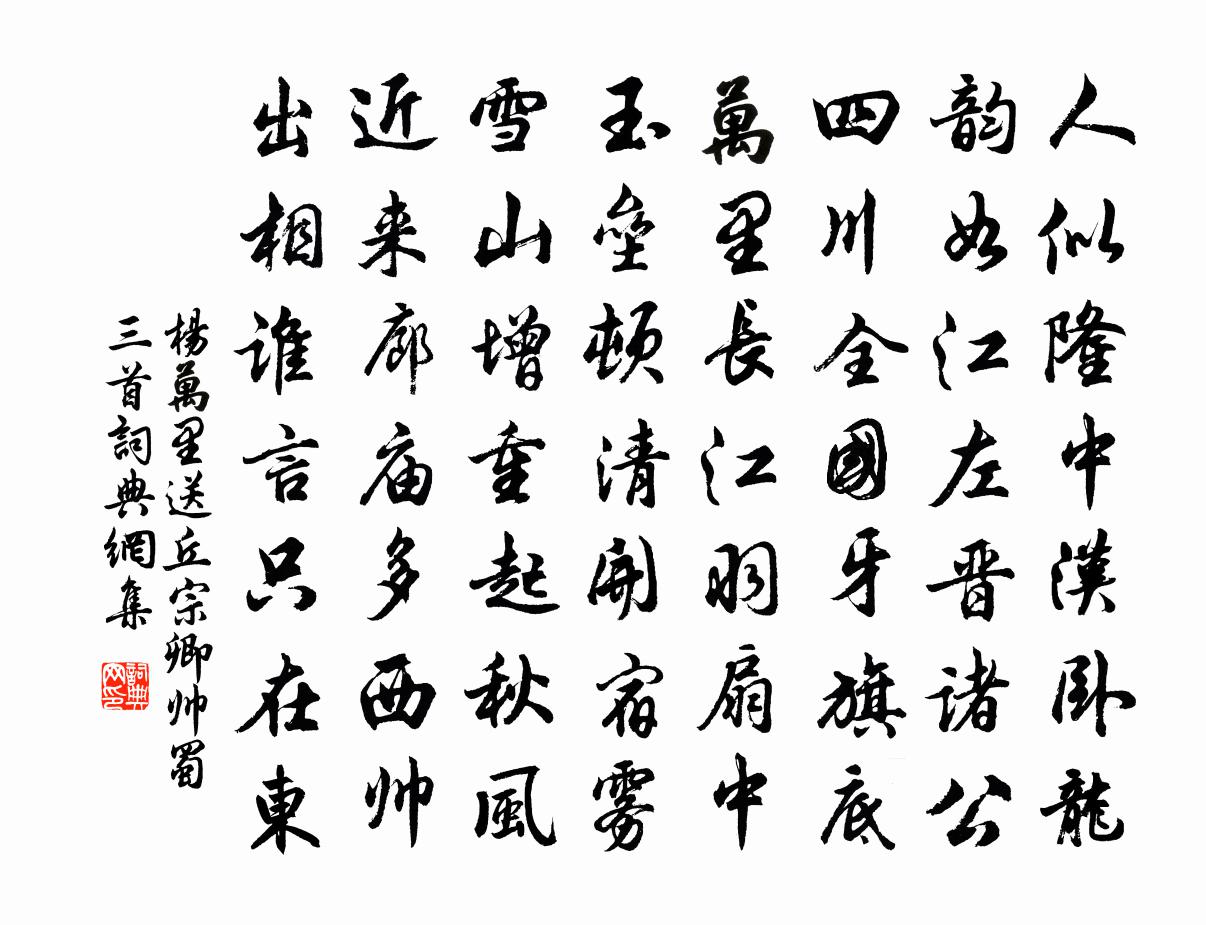 人似隆中漢卧龍
韵如江左晋诸公
四川全國牙旗底
萬里長江羽扇中
玉壘頓清開宿雾
雪山增重起秋風
近来廊庙多西帅
出相谁言只在東
楊萬里送丘宗卿帅蜀
三首詞典網集
詞典
网印